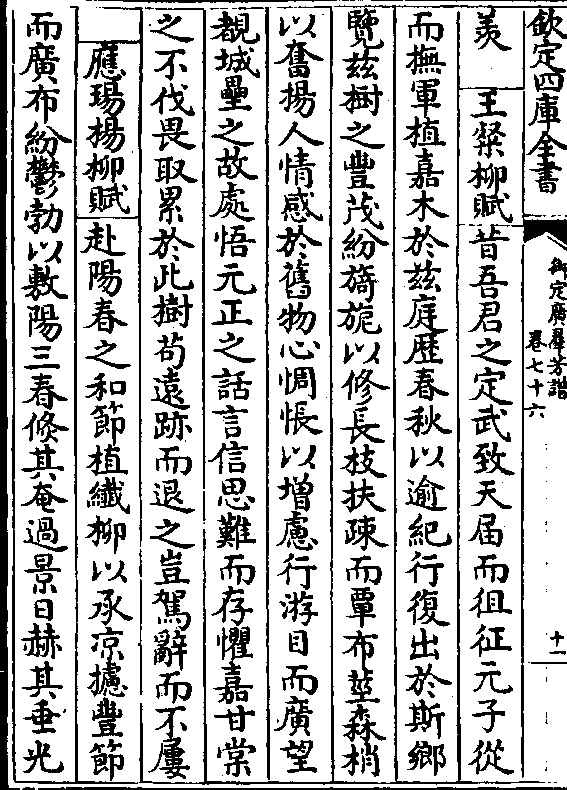 欽定四庫全書
御定廣羣芳譜
卷七十六
十一
羡
王粲柳賦昔吾君之定武致天届而徂征元子從
而撫軍植嘉木於兹庭歴春秋以逾紀行復出於斯鄉
覽兹樹之豐茂紛旖旎以修長枝扶疎而覃布莖森梢
以奮揚人情感於舊物心惆悵以增慮行游目而廣望
覩城壘之故處悟元正之話言信思難而存懼嘉甘棠
之不伐畏取累於此樹苟遠跡而退之豈駕辭而不屢
應瑒楊柳賦赴陽春之和節植纎柳以承凉攄豐節
而廣布紛鬱勃以敷陽三春倏其奄過景日赫其垂光